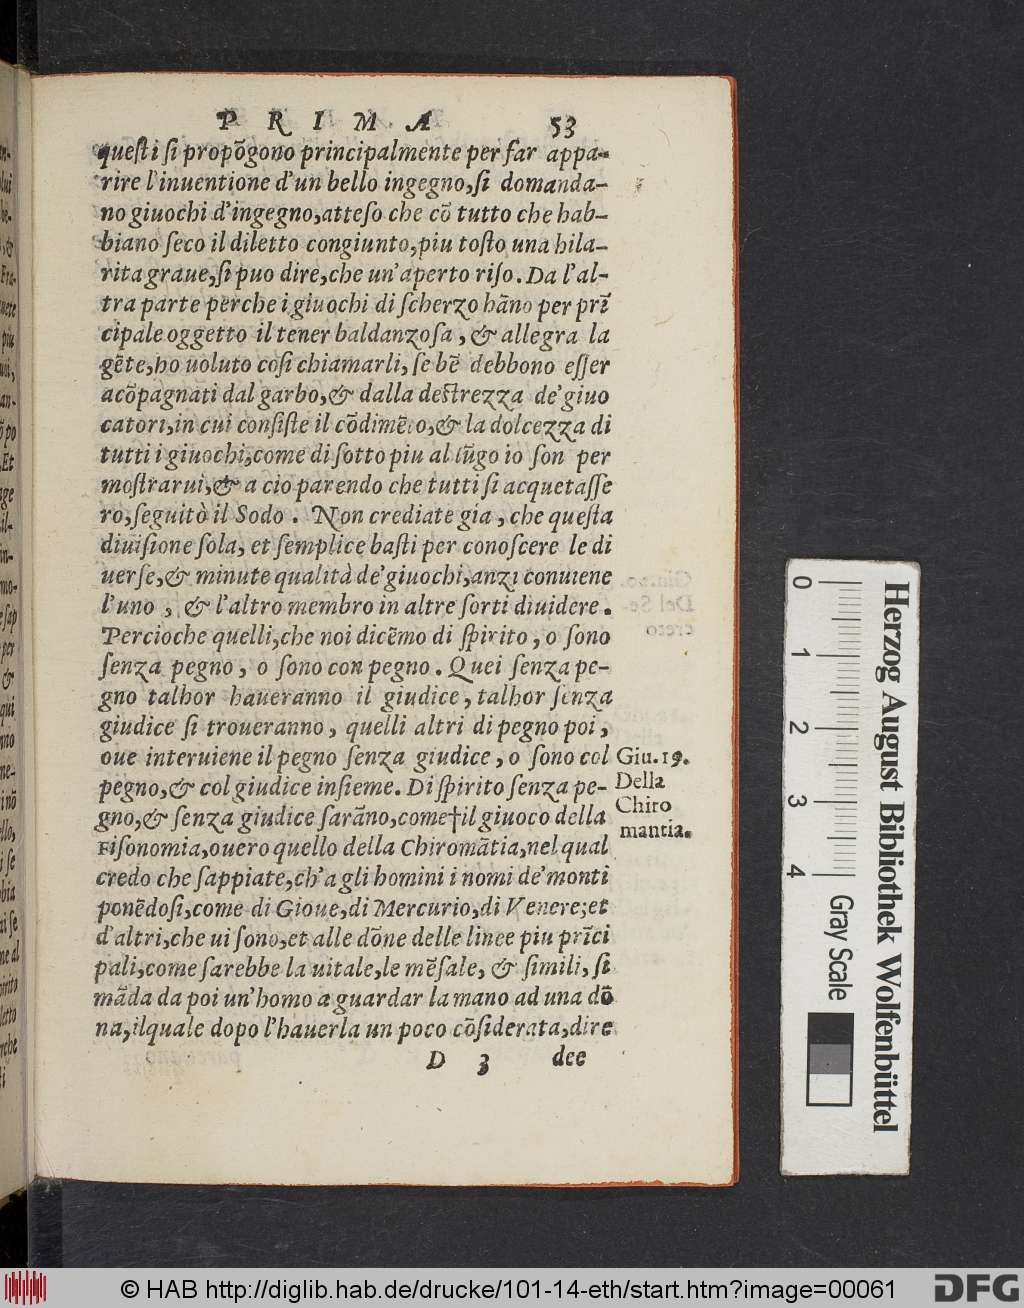 PRIMA 53
questi si propõgono principalmente per far appa-
rire l'inuentione d'un bello ingegno,si domanda-
no giuochi d'ingegno,atteso che cõ tutto che hab-
biano seco il diletto congiunto,piu tosto una hila-
rita graue,si puo dire,che un'aperto riso. Da l'al-
tra parte perche i giuochi di scherzo hãno per prĩ
cipale oggetto il tener baldanzosa, & allegra la
gẽte,ho uoluto cosi chiamarli, se bẽ debbono esser
acõpagnati dal garbo,& dalla destrezza de'giuo
catori,in cui consiste il cõdimẽto,& la dolcezza di
tutti i giuochi,come di sotto piu al lũgo io son per
mostrarui,& a cio parendo che tutti si acquetasse
ro,seguitò il Sodo. Non crediate gia, che questa
diuisione sola, et semplice basti per conoscere le di
uerse,& minute qualità de'giuochi,anzi conuiene
l'uno, & l'altro membro in altre sorti diuidere.
Percioche quelli,che noi dicẽmo di spirito, o sono
senza pegno, o sono con pegno. Quei senza pe-
gno talhor haueranno il giudice, talhor senza
giudice si troueranno, quelli altri di pegno poi,
oue interuiene il pegno senza giudice, o sono col
pegno,& col giudice insieme. Di spirito senza pe-
gno,& senza giudice sarãno,come†il giuoco della
Fisonomia,ouero quello della Chiromãtia,nel qual
credo che sappiate,ch'a gli homini i nomi de'monti
ponẽdosi,come di Gioue,di Mercurio,di Venere;et
d'altri,che ui sono,et alle dõne delle linee piu prĩci
pali,come sarebbe la uitale,le mẽsale, & simili, si
mãda da poi un'homo a guardar la mano ad una dõ
na,ilquale dopo l'hauerla un poco cõsiderata,dire
D 3 dee
Giu.19.
Della
Chiro
mantia.
0 1 2 3 4
Herzog August Bibliothek Wolfenbüttel
Gray Scale
© HAB http://diglib.hab.de/drucke/101-14-eth/start.htm?image=00061
DFG